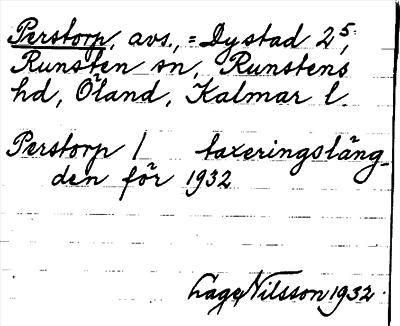 Perstorp, avs., = Dystad 2⁵,
Runsten sn, Runstens
hd, Öland, Kalmar l.
Perstorp / taxeringsläng-
den för 1932
Lage Nilsson 1932.